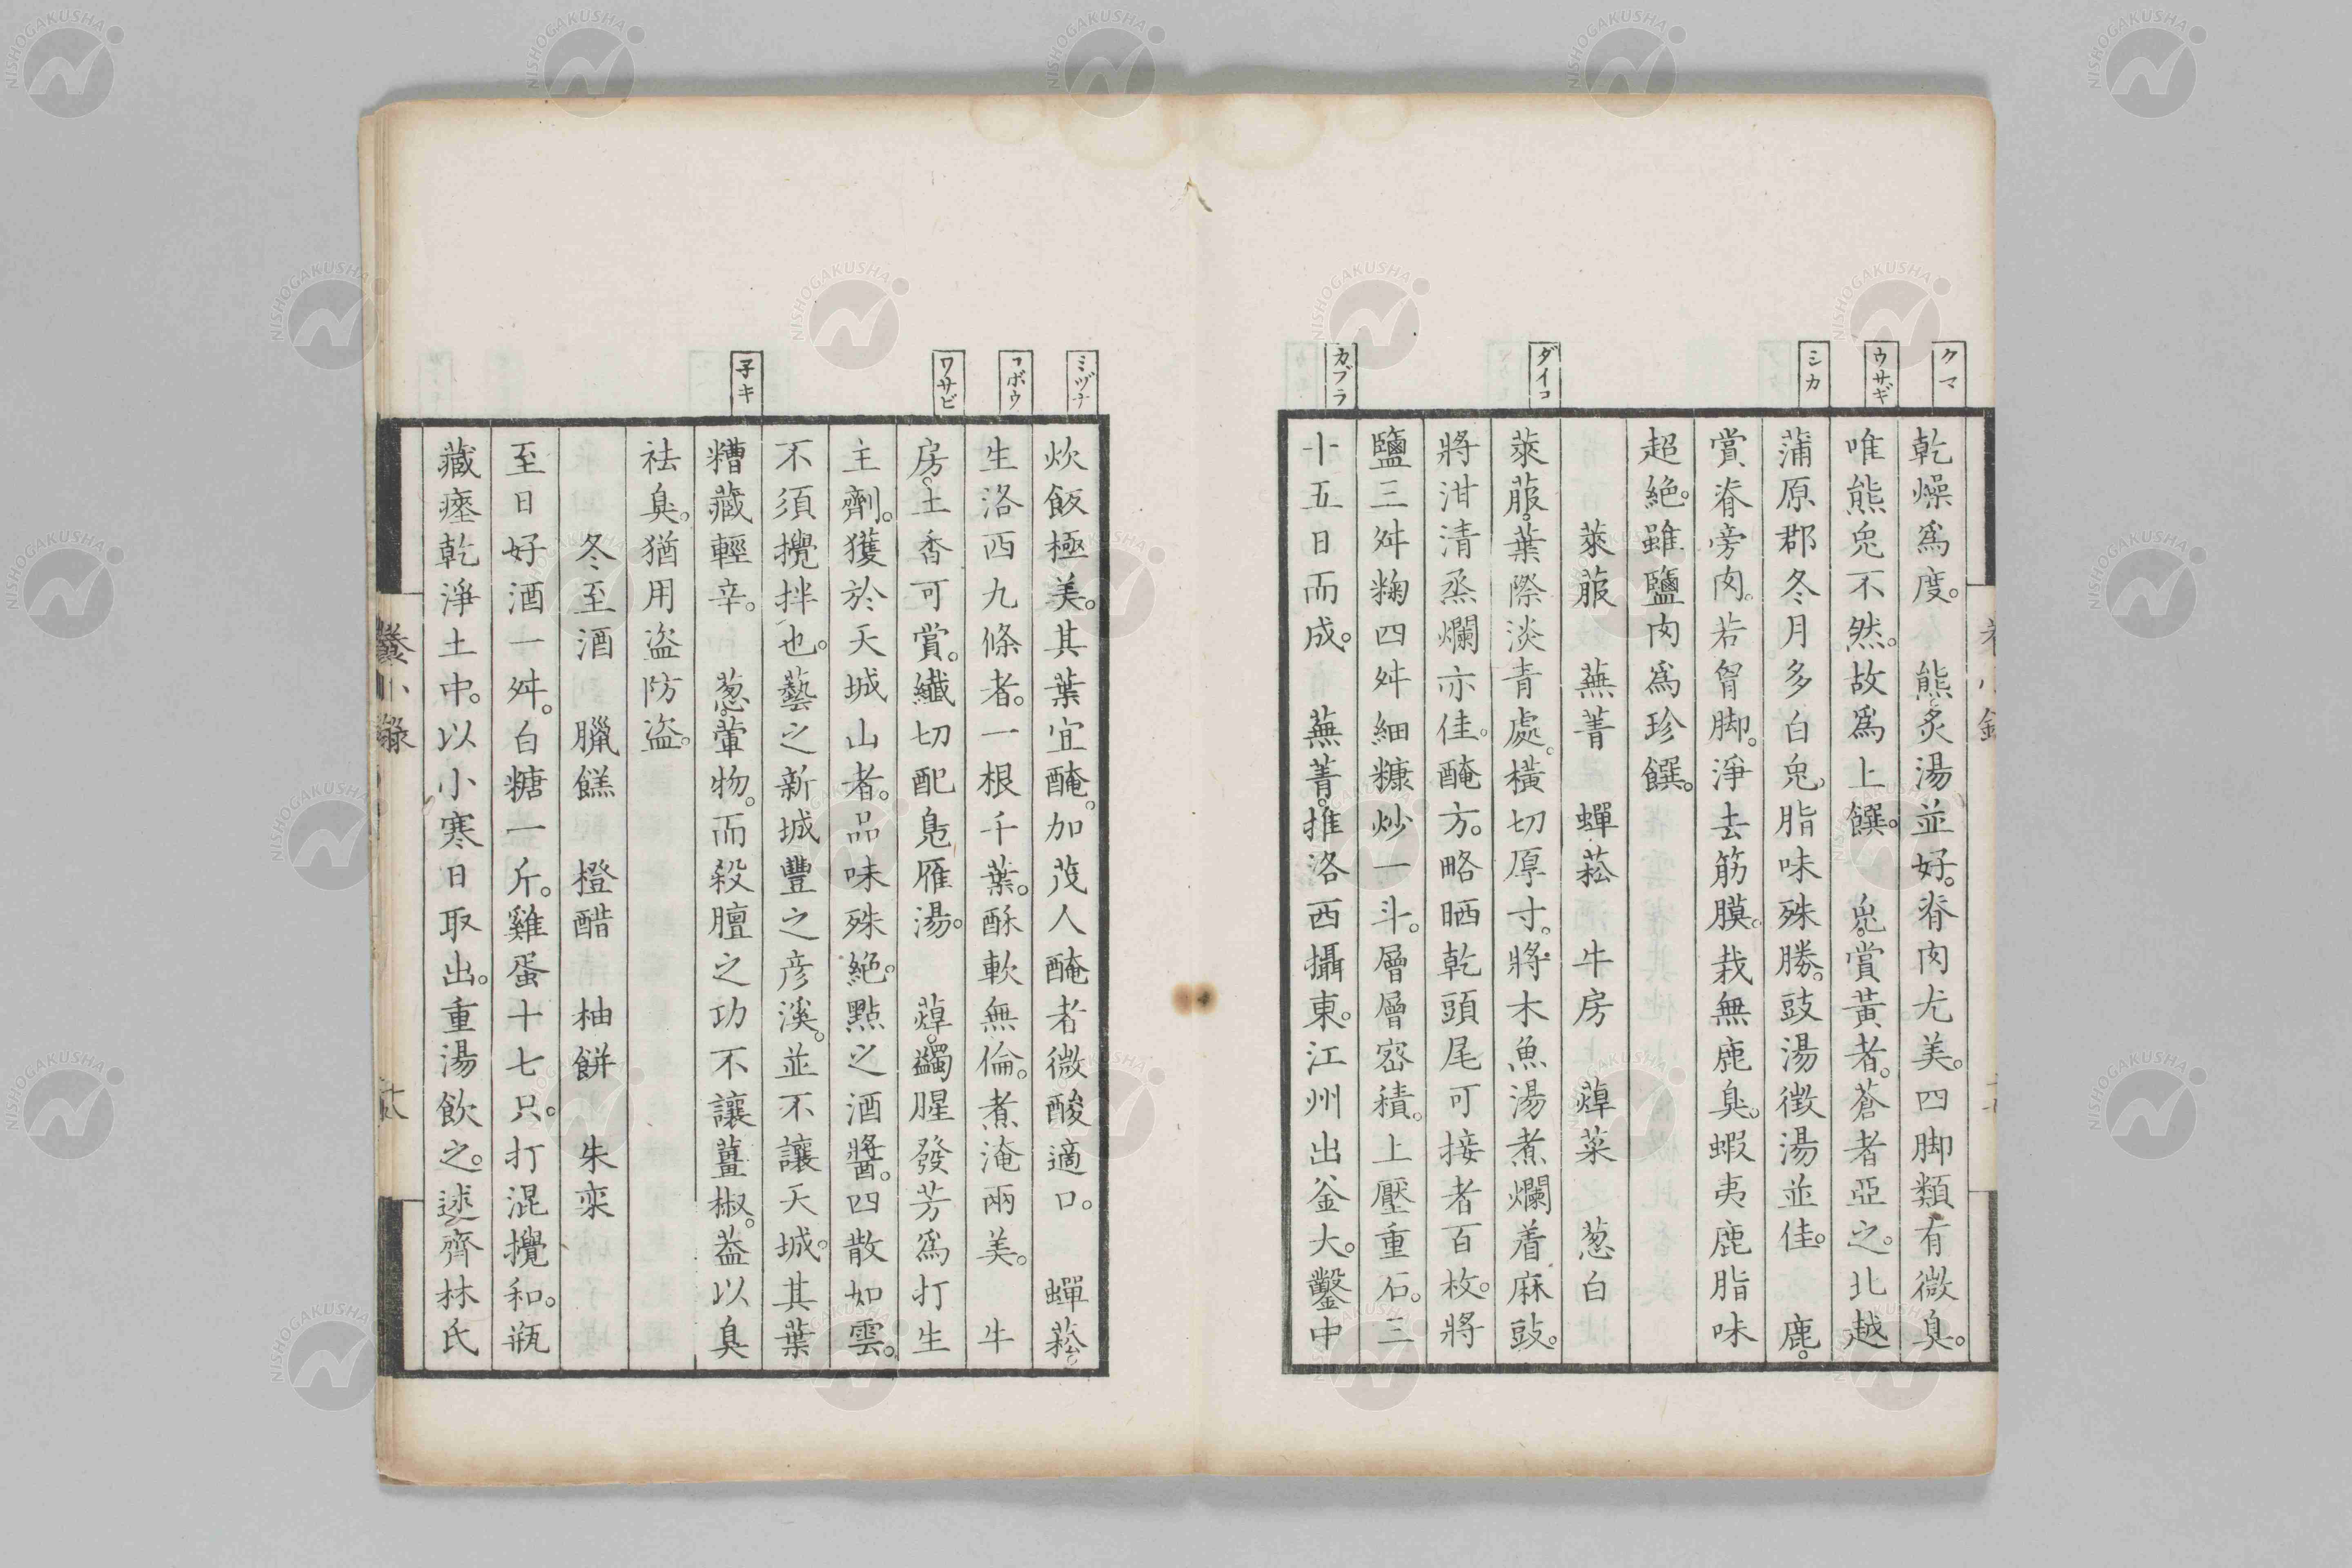 クマ
ウサギ
シカ
ダイコ
カブラ
乾燥爲度。　熊。炙湯並好。脊肉尤美。四脚類有微臭。
唯熊兎不然。故爲上饌。　兎。賞黃者。蒼者亞之。北越
蒲原郡冬月多白兎。脂味殊勝。豉湯徴湯並佳。　鹿。
賞脊旁肉。若胷脚。淨去筋膜。哉無鹿臭。蝦夷鹿脂味
超絶。雖鹽肉爲珍饌。
萊菔　蕪菁　蟬菘　牛房　葷菜　葱白
萊菔。葉際淡青處。橫切厚寸。將木魚湯煮爛着麻豉。
將泔清烝爛亦佳。醃方。略晒乾頭尾可接者百枚。將
鹽三舛麹四舛細糠炒一斗。層層密積。上壓重石。三
十五日而成。　蕪菁。推洛西攝東。江州出釜大。鑿中
ミヅナ
コボウ
ワサビ
子キ
炊飯極美。其葉宜醃。加茂人醃者微酸適口。　蟬菘。
生洛西九條者。一根千葉。酥軟無倫。煮淹兩美。　牛
房。土香可賞。纎切配鳧雁湯。　葷。蠲腥發芳爲打生
主劑。獲於天城山者。品味殊絶。點之酒醬。四散如雲。
不須攪拌也。藝之新城豐之彦溪。並不讓天城。其葉
糟藏輕辛。　葱。葷物。而殺膻之功不讓薑椒。葢以臭
祛臭。猶用盗防盗。
冬至酒　臘餻　橙醋　柚餅　朱栾
至日好酒一舛。白糖一斤。雞蛋十七只。打混攪和。瓶
藏瘞乾淨土中。以小寒日取出。重湯飲之。述齊林氏